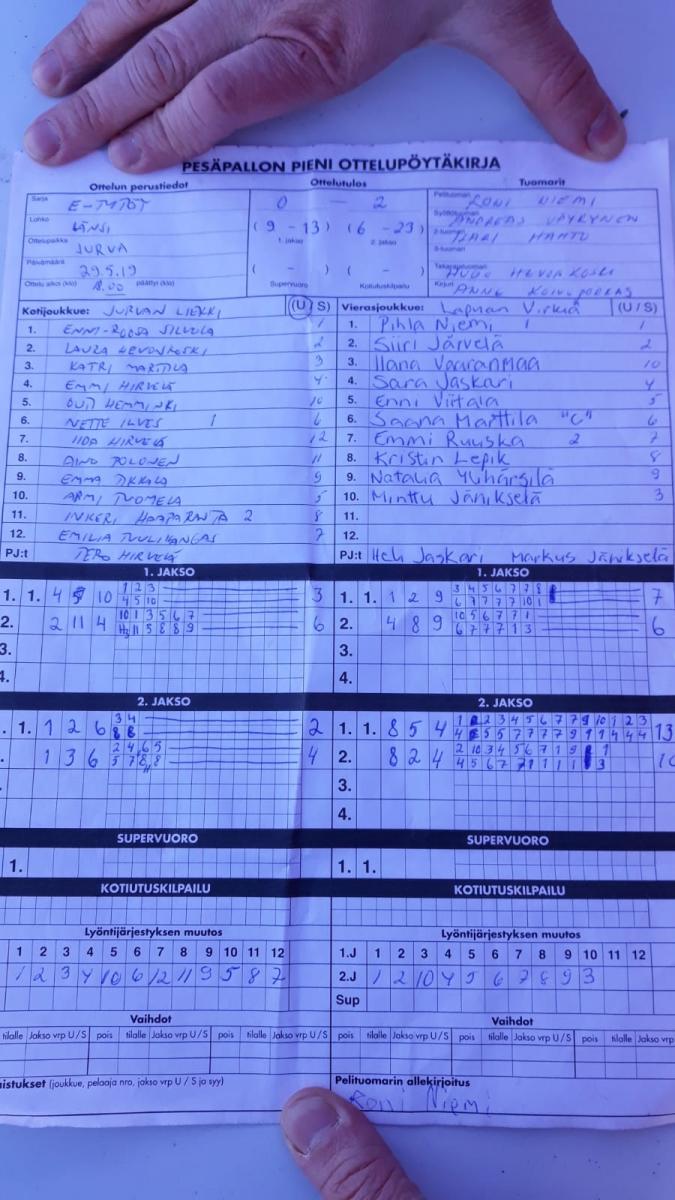 PESÄPALLON PIENI OTTELUPÖYTÄKIRJA
Ottelun perustiedot Ottelutulos Tuomarit
Sarja E-TYTÖT 0 - 2 Pelituomari RONI NIEMI
Lohko LÄNSI (9 - 13) (6 - 23) Syöttötuomari ANDREAS VÄYRYNEN
1. jakso 2. jakso 2-tuomari
Ottelupaikka JURVA 3-tuomari
Päivämäärä 29.5.19 ( - ) ( - ) Takarajatuomari
Ottelu alkoi (klo) 18.00 päättyi (klo) Supervuoro Kotiutuskilpailu Kirjuri ANNE
Kotijoukkue: JURVAN LIEKKI (U/S) Vierasjoukkue: Lapuan Virkiä (U/S)
1. ENNI-ROOSA SILVOLA 1 1. Pihla Niemi 1 1
2. LAURA HEVOSKOSKI 2 2. Siiri Järvelä 2
3. KATRI MARTTILA 3 3. Ilana Vaaranmaa 10
4. EMMI HIRVELÄ 4 4. Sara Jaskari 4
5. OUTI HEMMINKI 10 5. Enni Viitala 5
6. NETTE ILVES 1 6 6. Saana Marttila "C" 6
7. IIDA HIRVELÄ 12 7. Emmi Ruuska 2 7
8. AINO POLONEN 11 8. Kristin Lepik 8
9. EMMA 9 9. Natalia Ylihärsilä 9
10. ARMI TUOMELA 5 10. Minttu Jänikselä 3
11. INKERI HAAPARANTA 2 8 11.
12. EMILIA TUULIKANGAS 7 12.
PJ:t TERO HIRVELÄ PJ:t Heli Jaskari Markus Jänikselä
1. JAKSO 1. JAKSO
1. 1. 4 5 10 1 2 3 3 1. 1. 1 2 9 3 4 5 6 7 7 8 7
4 5 10 6 7 7 7 7 10 1
2. 2 11 4 10 1 3 5 6 7 6 2. 4 8 9 10 5 6 7 7 1 6
11 5 8 8 9 6 7 7 7 1 3
3. 3.
4. 4.
2. JAKSO 2. JAKSO
1. 1 2 6 3 4 2 1. 1. 8 5 4 13
8 8
1 3 6 2 4 6 5 4 2. 8 2 4
5 7 8 8
3.
4.
SUPERVUORO SUPERVUORO
1. 1. 1.
KOTIUTUSKILPAILU KOTIUTUSKILPAILU
Lyöntijärjestyksen muutos Lyöntijärjestyksen muutos
1 2 3 4 5 6 7 8 9 10 11 12 1.J 1 2 3 4 5 6 7 8 9 10 11 12
1 2 3 4 10 6 12 11 9 5 8 7 2.J 1 2 10 4 5 6 7 8 9 3
Sup
Vaihdot Vaihdot
tilalle Jakso vrp U/S pois tilalle Jakso vrp U/S pois tilalle Jakso vrp U/S pois tilalle Jakso vrp
(joukkue, pelaaja nro, jakso vrp U / S ja syy) Pelituomarin allekirjoitus
Roni Niemi